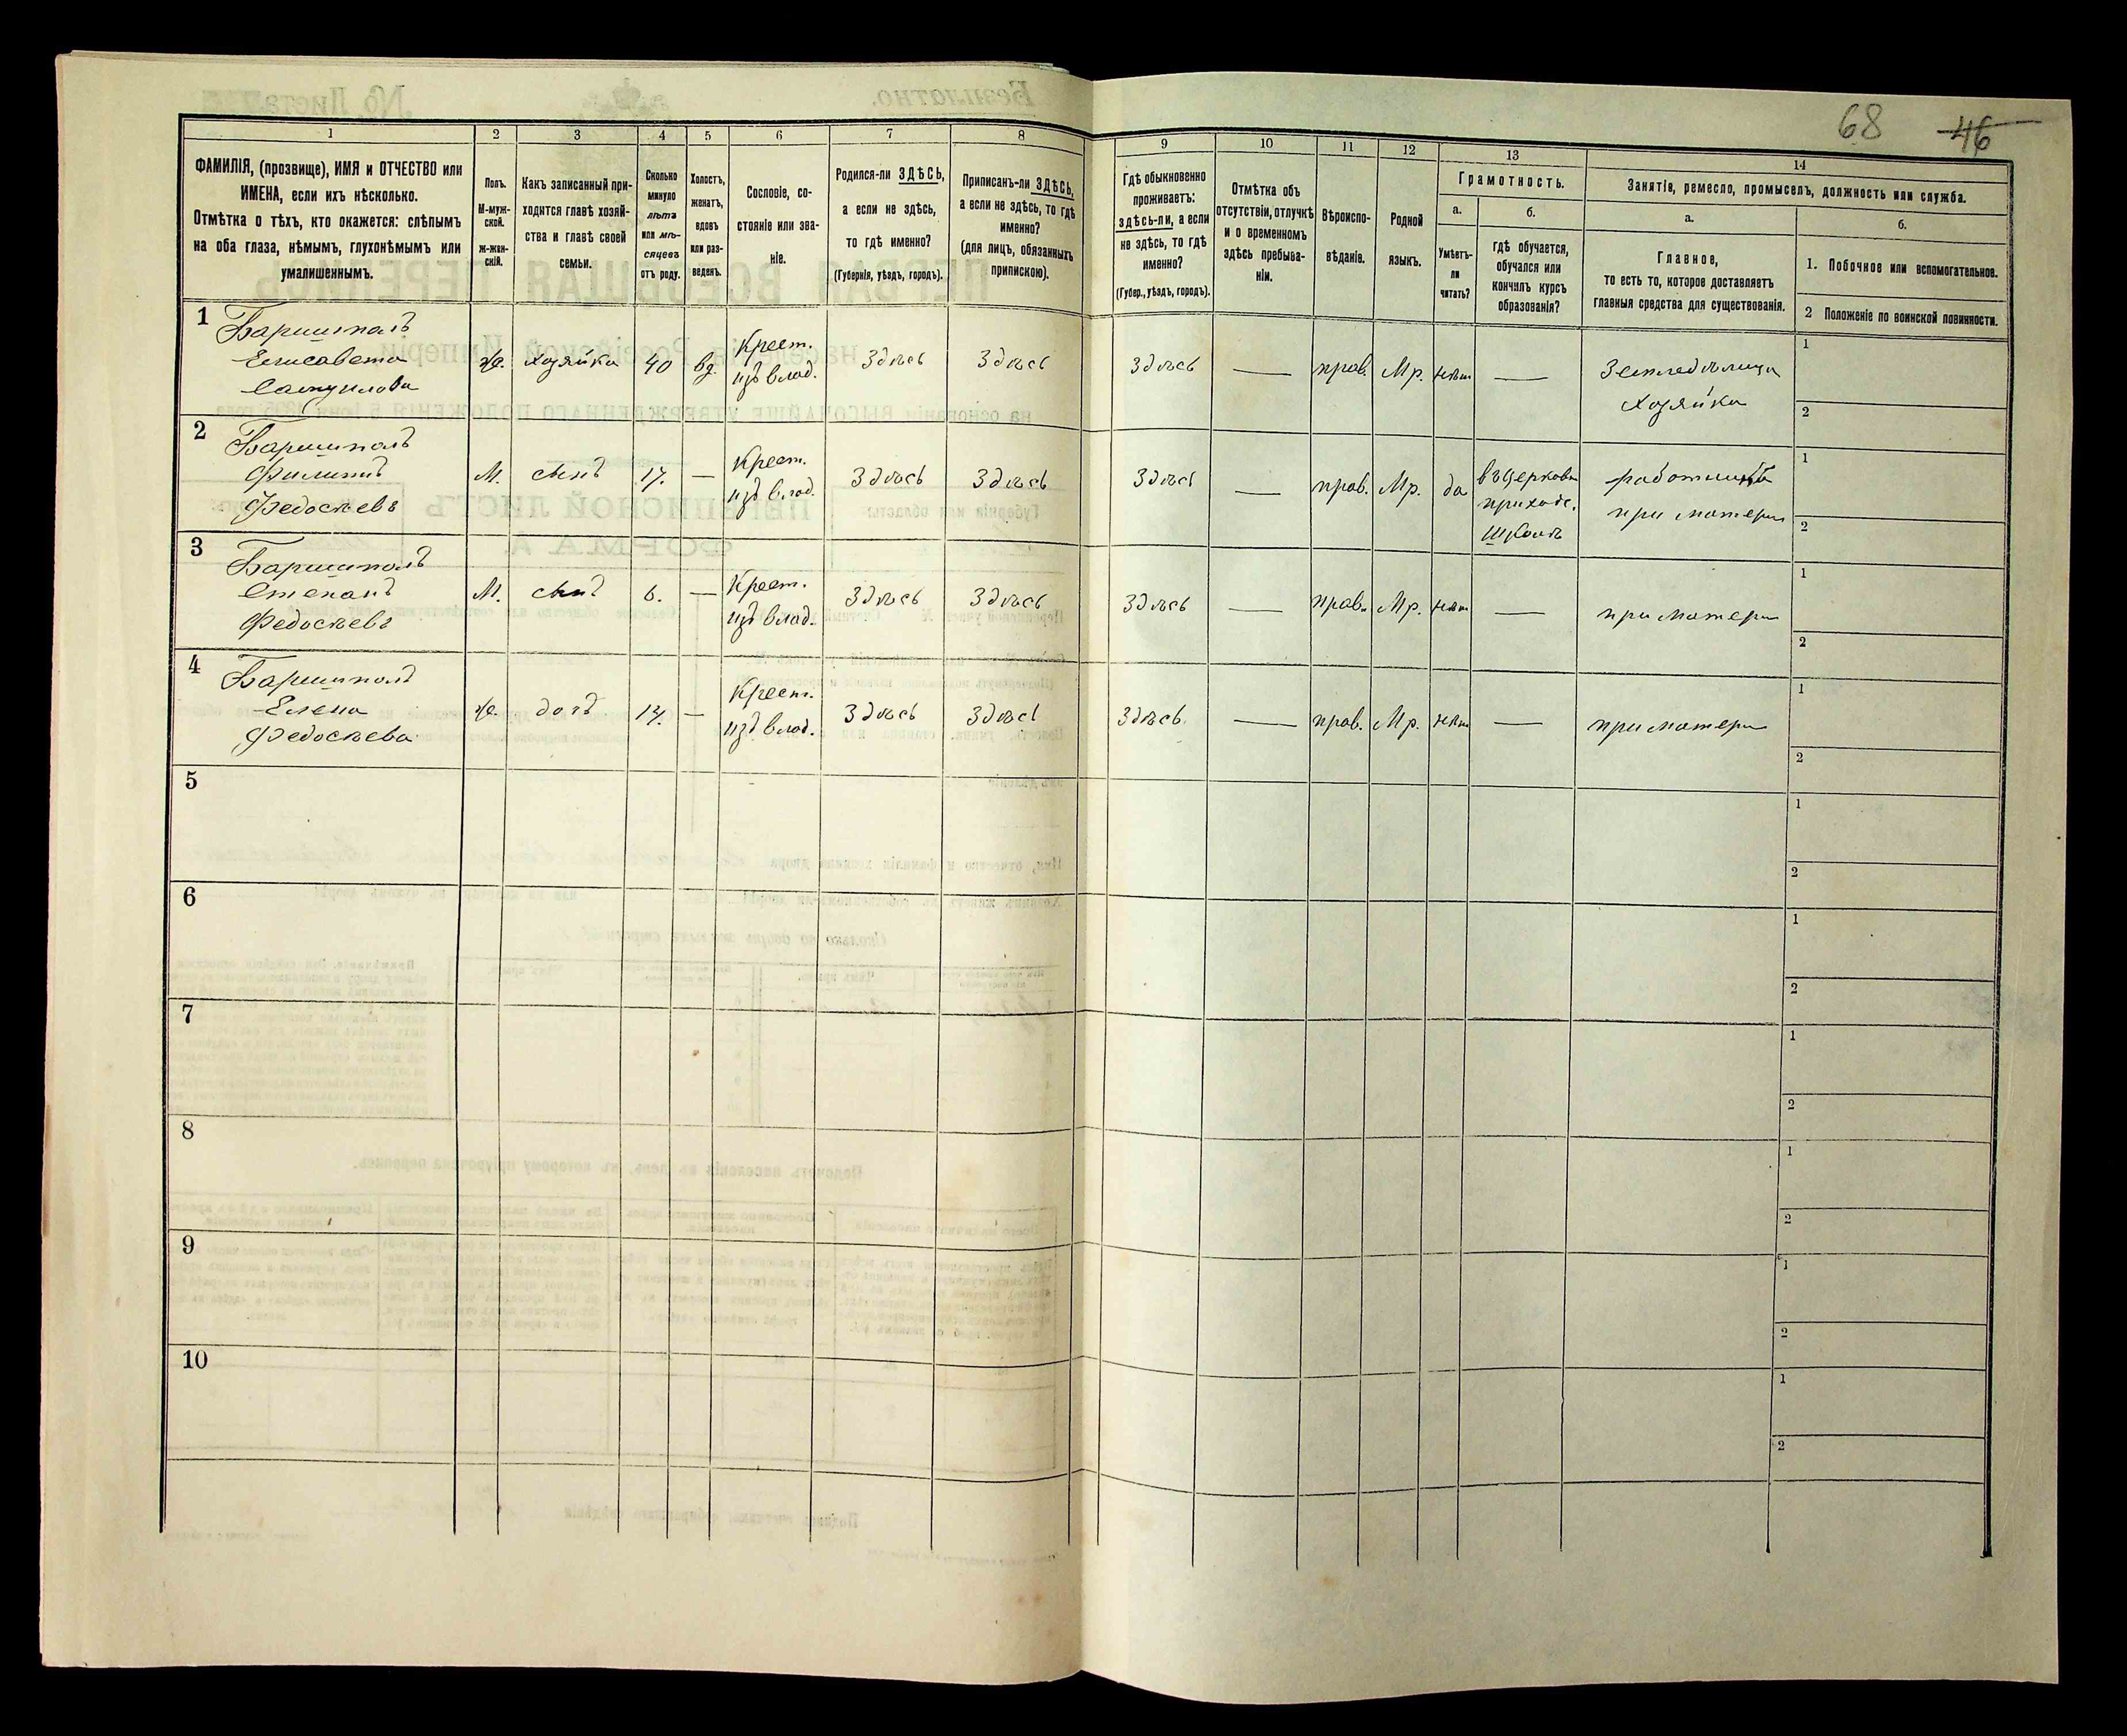 68 46
1 2 3 4 5 6 7 8 9 10 11 12 13 14
ФАМИЛІЯ, (прозвище), ИМЯ и ОТЧЕСТВО или
ИМЕНА, если ихъ нѣсколько.
Отмѣтка о тѣхъ, кто окажется: слѣпымъ
на оба глаза, нѣмымъ, глухонѣмымъ или
умалишеннымъ.
Полъ.
М-муж-
ской.
Ж-жен-
скій.
Какъ записанный при-
ходится главѣ хозяй-
ства и главѣ своей
семьи.
Сколько
минуло
лѣтъ
или мѣ-
сяцевъ
отъ роду.
Холостъ,
женатъ,
вдовъ
или раз-
веденъ.
Сословіе, со-
стояніе или зва-
ніе.
Родился-ли ЗДѢСЬ,
а если не здѣсь,
то гдѣ именно?
(Губернія, уѣздъ, городъ).
Приписанъ-ли ЗДѢСЬ,
а если не здѣсь, то гдѣ
именно?
(для лицъ, обязанныхъ
припискою).
Гдѣ обыкновенно
проживаетъ:
здѣсь-ли, а если
не здѣсь, то гдѣ
именно?
(Губер., уѣздъ, городъ).
Отмѣтка объ
отсутствіи, отлучкѣ
и о временномъ
здѣсь пребыва-
ніи.
Вѣроиспо-
вѣданіе.
Родной
языкъ.
Грамотность.
а.
Умѣетъ-
ли
читать?
б.
гдѣ обучается,
обучался или
кончилъ курсъ
образованія?
Занятіе, ремесло, промыселъ, должность или служба.
а.
Главное,
то есть то, которое доставляетъ
главныя средства для существованія.
б.
1. Побочное или вспомогательное.
2 Положеніе по воинской повинности.
1
Баришполъ
Елисавета
Самуилова
Ж. хозяйка 40 вд.
Крест.
изъ влад.
Здѣсь Здѣсь Здѣсь — прав. Мр. нѣтъ —
Земледѣлица
хозяйка
1
2
2
Баришполъ
Филиппъ
Федосѣевъ
М. сынъ 17. —
Крест.
изъ влад.
Здѣсь Здѣсь Здѣсь — прав. Мр. да
въ церковн
приходс.
школѣ
при матери
1
2
3
Баришполъ
Степанъ
Федосѣевъ
М. сынъ 6. —
Крест.
изъ влад.
Здѣсь Здѣсь Здѣсь — прав. Мр. нѣтъ —
при матери
1
2
4
Баришполъ
Елена
Федосѣева
Ж. дочь —
Крест.
изъ влад.
Здѣсь Здѣсь Здѣсь — прав. Мр. нѣтъ —
при матери
1
2
5
1
2
6
1
2
7
1
2
8
1
2
9
1
2
10
1
2